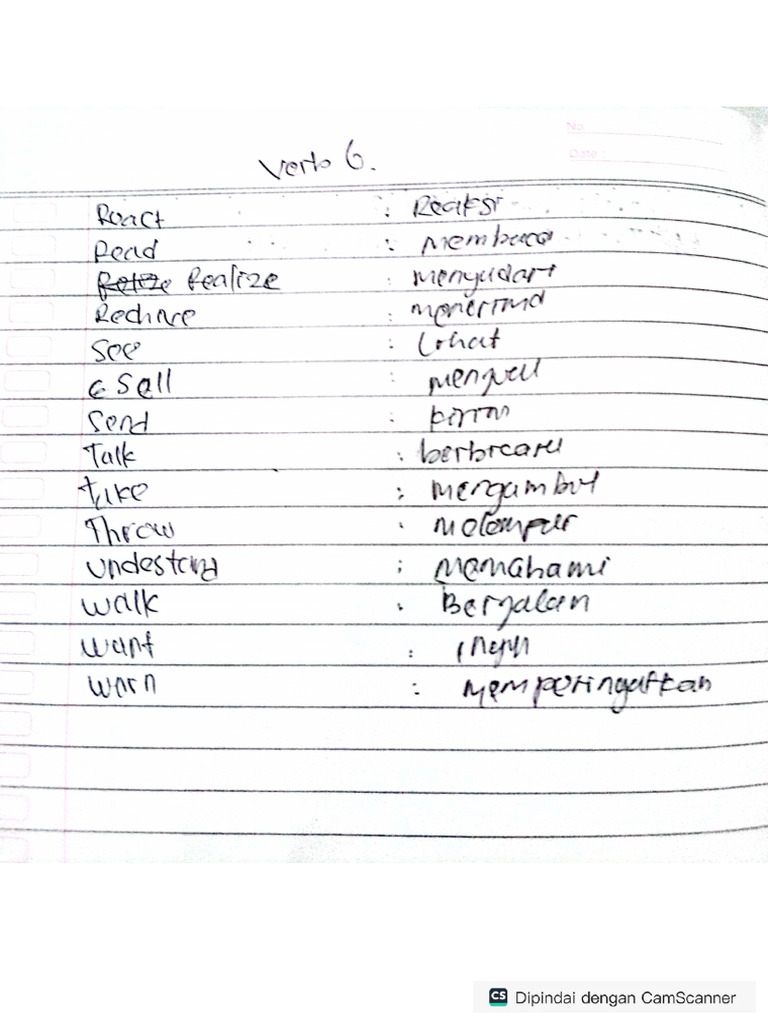 No
Date :
Verb 6.
React : Reaksi
Read : Membaca
Realize : Menyadari
Recheive : Menerima
See : Lihat
Sell : Menjual
Send : Kirim
Talk : berbicara
take : Mengambil
Throw : Melempar
Undestand : Memahami
Walk : Berjalan
Want : Ingin
Warn : Memperingatkan
CS Dipindai dengan CamScanner